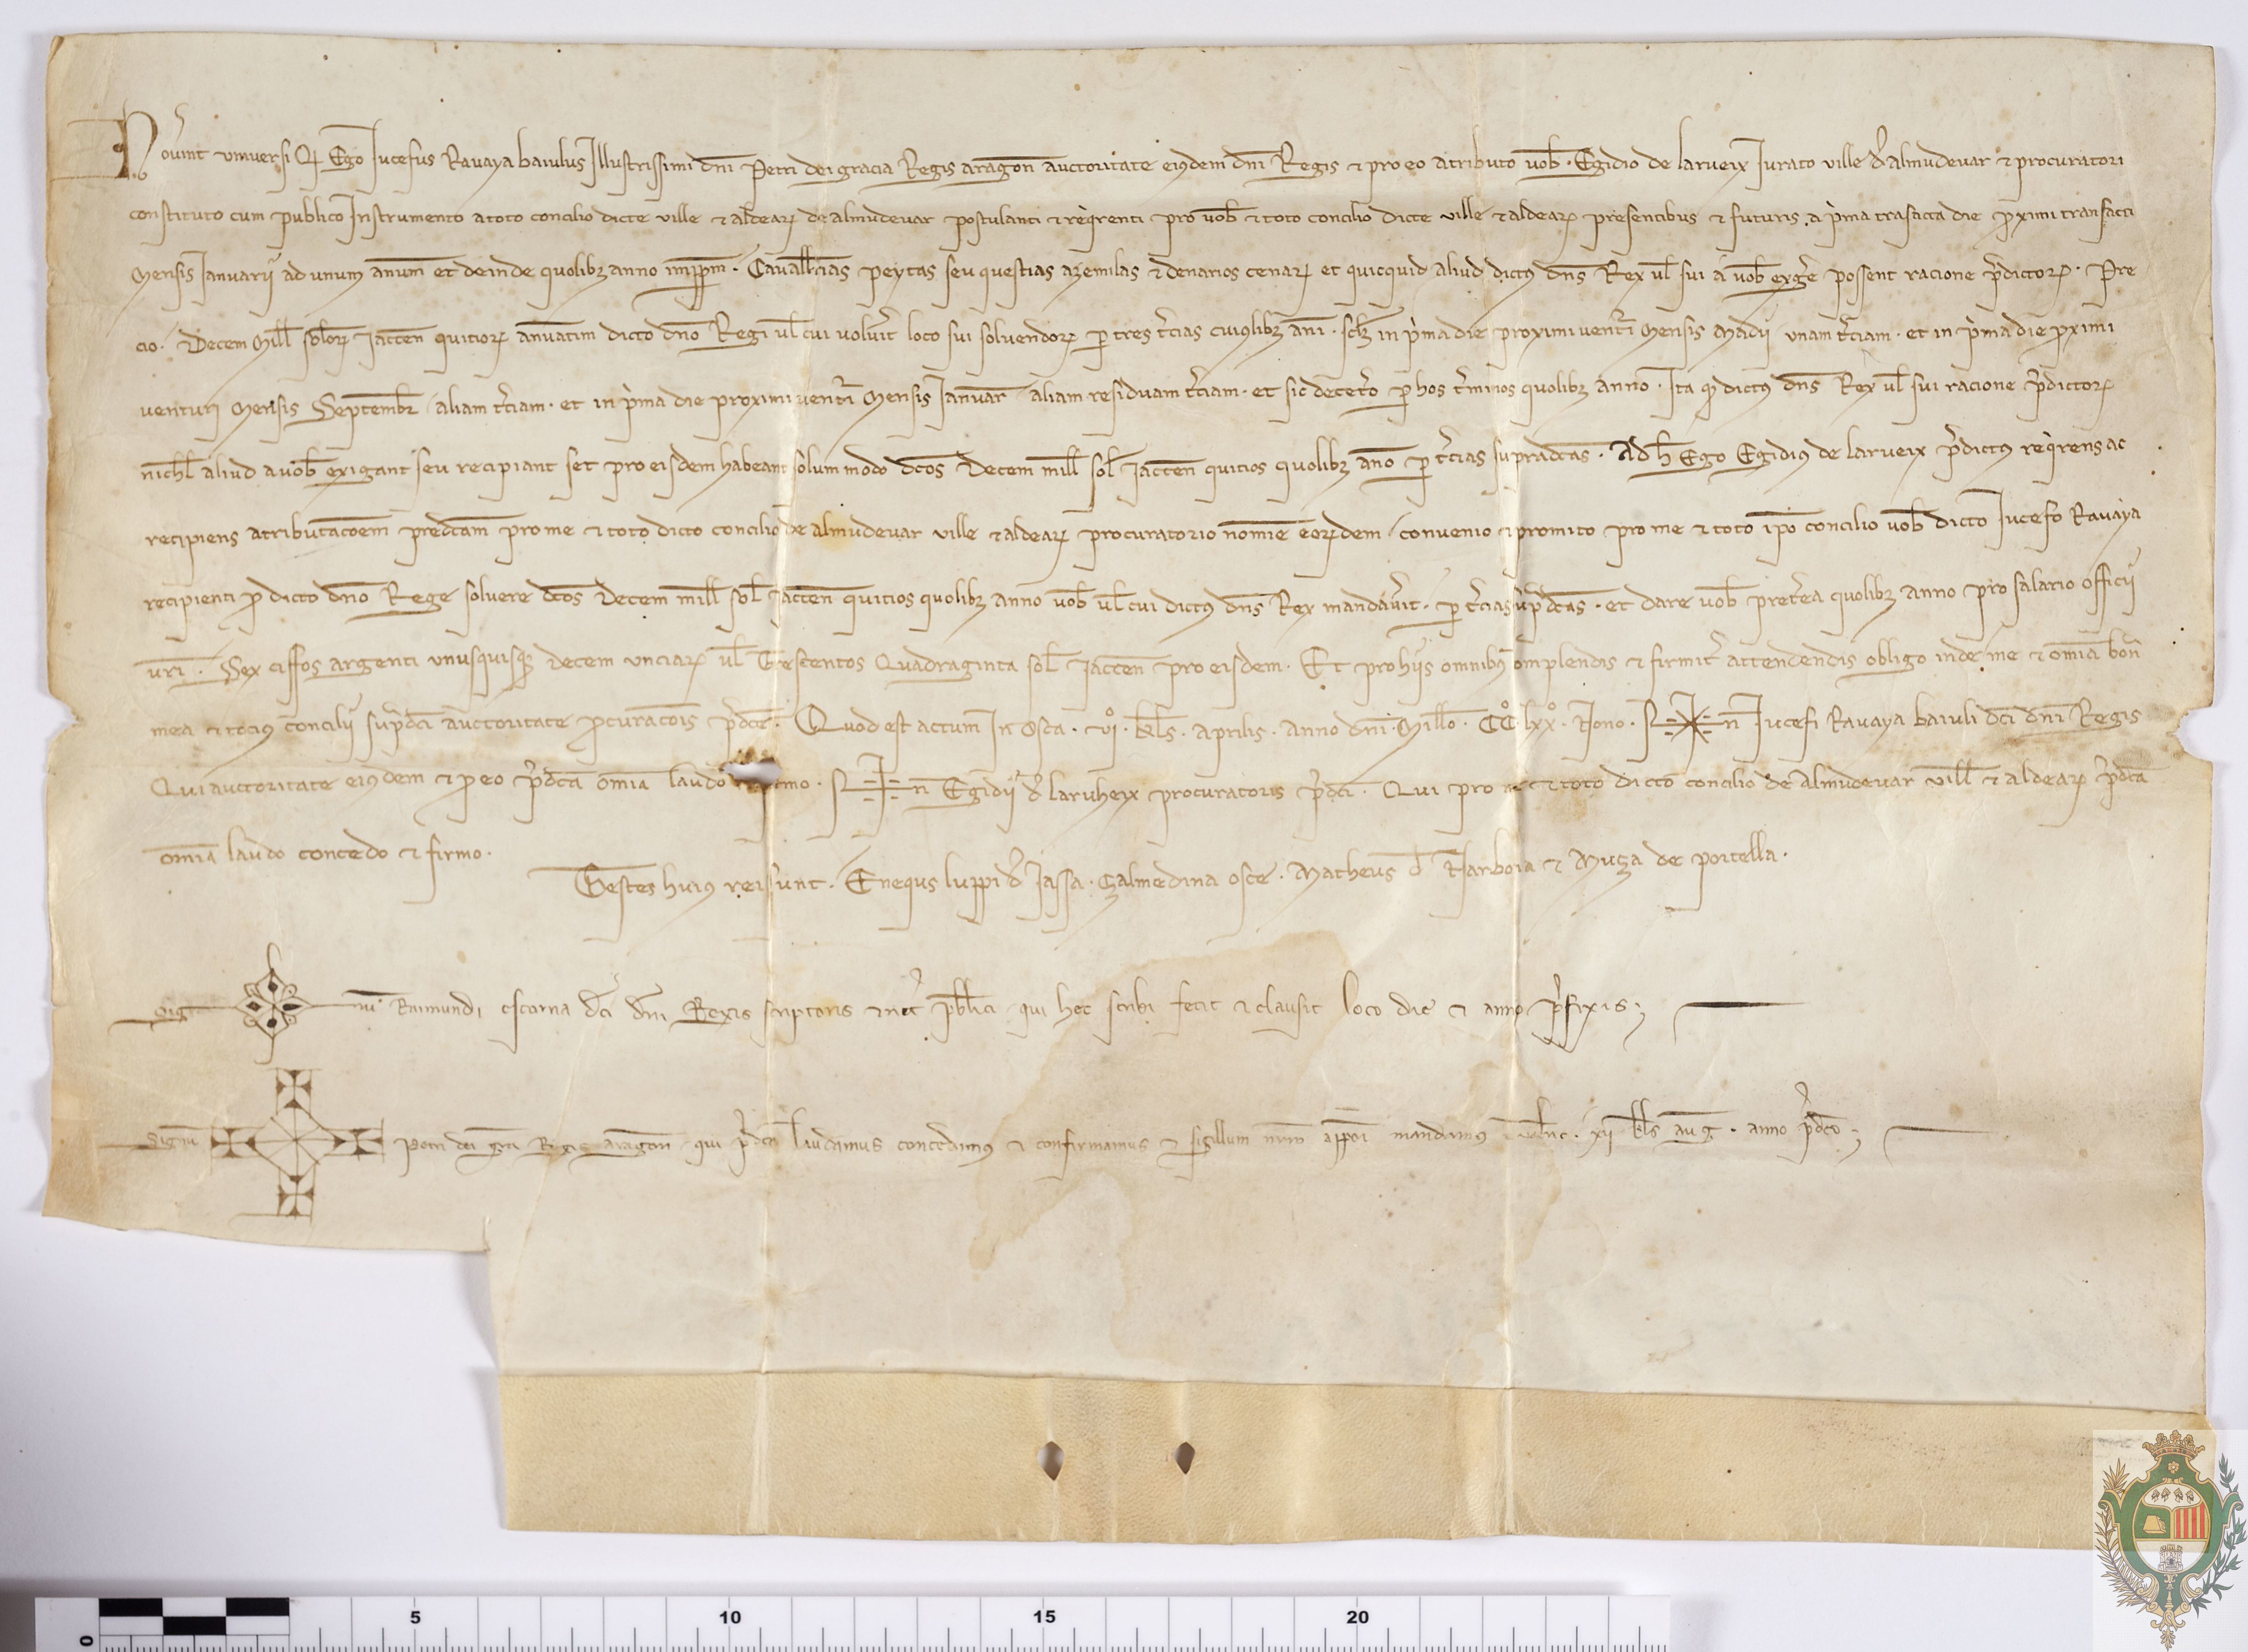 Nov̄int universi Q̄ Ego Jucefus Ravaya baiulus Illustrissimi dn̄i Petri dei gracia Regis aragon̄ auctoritate eiusdem dn̄i Regis et pro eo atributo vob̄ · Egidio de larueix Jurato ville d̄ almudevar et procuratori
constituto cum publico Instrumento a toto concilio dicte ville et aldeaꝝ de almudevar postulanti et req̇renti pro vob̄ et toto concilio dicte ville et aldeaꝝ presentibus et futuris a ṗma trasacta die ꝓximi transacti
Mensis Januarii ad unum annum et deinde quolibꝫ anno imꝑꝑm̄ · Cavall̄cias peytas seu questias azemilas et denarios cenaꝝ et quicquid aliud dictꝰ dn̄s Rex vl̄ sui a vob̄ exiḡe possent racione p̄dictoꝝ · Pre
cio · Decem Mill̄ sol̄oꝝ Jaccen̄ quitioꝝ annuatim dicto dn̄o Regi vl̄ cui voluit̄ loco sui solvendoꝝ ꝑ tres t̄cias cuiuslibꝫ an̄i · scl̄ꝫ in ṗma die proximi vent̄i Mensis Madii unam t̄ciam · et in ṗma die ꝓximi
venturi Mensis Septembr̄ aliam t̄ciam · et in ṗma die proximi vent̄i Mensis Januar̄ aliam residuam t̄ciam · et sic decet̄o ꝑ hos t̄minos quolibꝫ anno · Ita ꝙ dictꝰ dn̄s Rex vl̄ sui racione p̄dictoꝝ
nichl̄ aliud a vob̄ exigant seu recipiant set pro eisdem habeant solum modo dc̄os Decem mill̄ sol̄ Jaccen̄ quitios quolibꝫ an̄o ꝑ t̄cias supradc̄as · Ad h̄ Ego Egidius de larueix p̄dictus req̇rens ac
recipiens atributac̄oem predc̄am pro me et toto dicto concilio de almudevar ville et aldeaꝝ procuratorio nomīe eoꝝdem convenio et promito pro me et toto ip̄o concilio vob̄ dicto Jucefo Ravaya
recipienti ꝓ dicto dn̄o Rege solvere dc̄os Decem mill̄ sol̄ Jaccen̄ quitios quolibꝫ anno vob̄ vl̄ cui dictꝰ dn̄s Rex mandav̄it · ꝑ t̄cias sup̄dc̄as · et dare vob̄ pret̄ea quolibꝫ anno pro salario officii
vr̄i · Sex ciffos argenti unusquisqꝫ decem unciaꝝ vl̄ Trescentos Quadraginta sol̄ Jaccen̄ pro eisdem · Et pro hiis omnibꝰ complendis et firmit̄ attendendis obligo inde me et om̄ia bon̄
mea et tociꝰ concilii sup̄dc̄i auctoritate ꝓcurac̄ois p̄dc̄e · Quod est actum In Osca · vi° · kl̄s · aprilis · anno dn̄i · Mill̄o · CC° · lxx° · Nono · Sig n̄ Jucefi Ravaya baiuli dc̄i dn̄i Regis
Qui auctoritate eiusdem et ꝓ eo p̄dc̄a om̄ia laudo · Sig n̄ Egidii d̄ laruheix procuratoris p̄dc̄i · Qui pro me et toto dicto concilio de almudevar vill̄ et aldeaꝝ p̄dc̄a
om̄ia laudo concedo et firmo ·
Testes huiꝰ rei sunt · Enequs luppi d̄ Jassa · Çalmedina osce · Matheus d̄ Narboia et Muça de portella ·
Sig nū Raimundi escorna dc̄i dn̄i Regis scriptoris et not̄ pub̄lici qui hec scribi fecit et clausit loco die et anno p̄fixis ;
Signū Petri dei gr̄a Regis aragon̄ qui p̄dc̄a laudamus concedimꝰ et confirmamus et sigillum nr̄m appōi mandamꝰ · xii kl̄s auḡ · anno p̄dc̄o ;
0 5 10 15 20